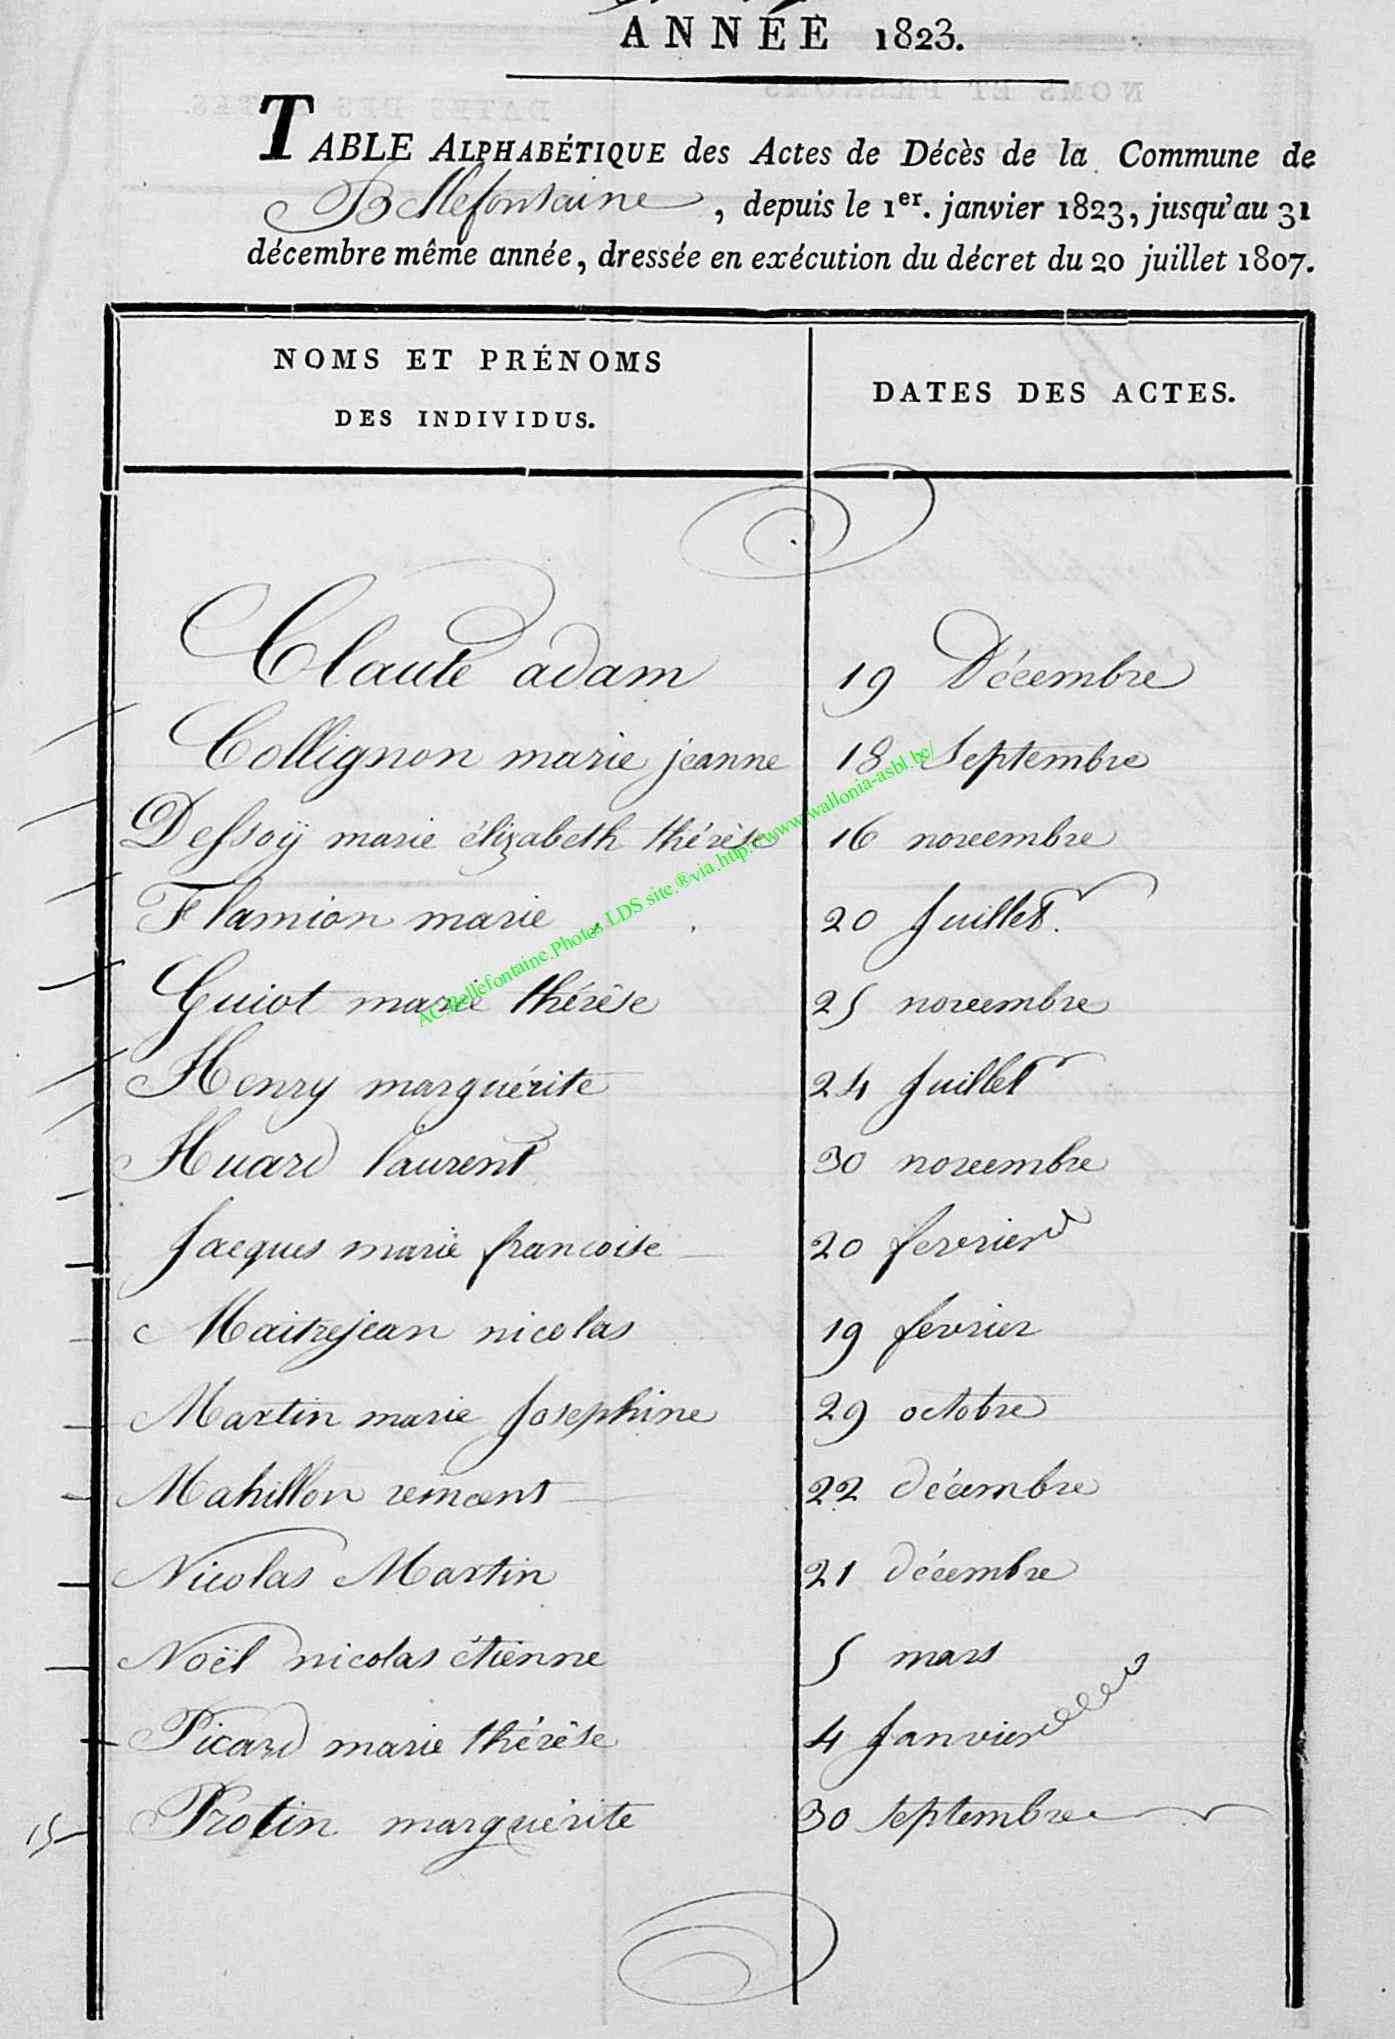 ANNÉE 1823.
TABLE ALPHABÉTIQUE des Actes de Décès de la Commune de
Bellefontaine, depuis le 1er. janvier 1823, jusqu'au 31
décembre même année, dressée en exécution du décret du 20 juillet 1807.
NOMS ET PRÉNOMS
DES INDIVIDUS.
DATES DES ACTES.
Claude adam 19 Décembre
Collignon marie jeanne 18 Septembre
Dessoÿ marie élizabeth thérèse 16 novembre
Flamion marie 20 Juillet.
Guiot marie thérèse 25 novembre
Henry marguérite 24 Juillet
Huard laurent 30 novembre
Jacques marie francoise 20 fevrier
Maitrejean nicolas 19 fevrier
Martin marie Josephine 29 octobre
Mahillon 22 décembre
Nicolas Martin 21 décembre
Noël nicolas étienne 5 mars
Picard marie thérèse 4 Janvier
15 Protin marguérite 30 septembre
AC.Bellefontaine.Photos LDS site.®via.http://www.wallonia-asbl.be/